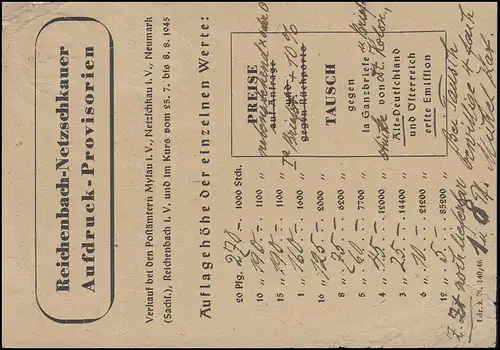 Reichenbach-Netzschkauer
Aufdruck-Provisorien
Verkauf bei den Postämtern Mylau i. V., Netzschkau i. V., Neumark
(Sachf.), Reichenbach i. V. und im Kurs vom 25. 7. bis 8. 8. 1945
Auflagehöhe der einzelnen Werte:
20 Pfg. 270 -. 1000 Stch.
10 „ 190 -. 1100 „
15 „ 190 -. 1100 „
1 „ 160 -. 1600 „
16 „ 125 -. 2000 „
8 „ 75 -. 6200 „
5 „ 60 -. 7700 „
4 „ 45 -. 12000 „
3 „ 25 -. 14400 „
6 „ 10 -. 21200 „
12 „ 5 -. 85200 „
PREISE
auf Anfrage
und
gegen Rückporto
+ 10 %
TAUSCH
gegen
la Ganzbriefe
von
Alt-Deutschland
und Österreich
erste Emission
z. Zt noch lieferbar
Bei Tausch
Ldr. k. Pl. 140/46